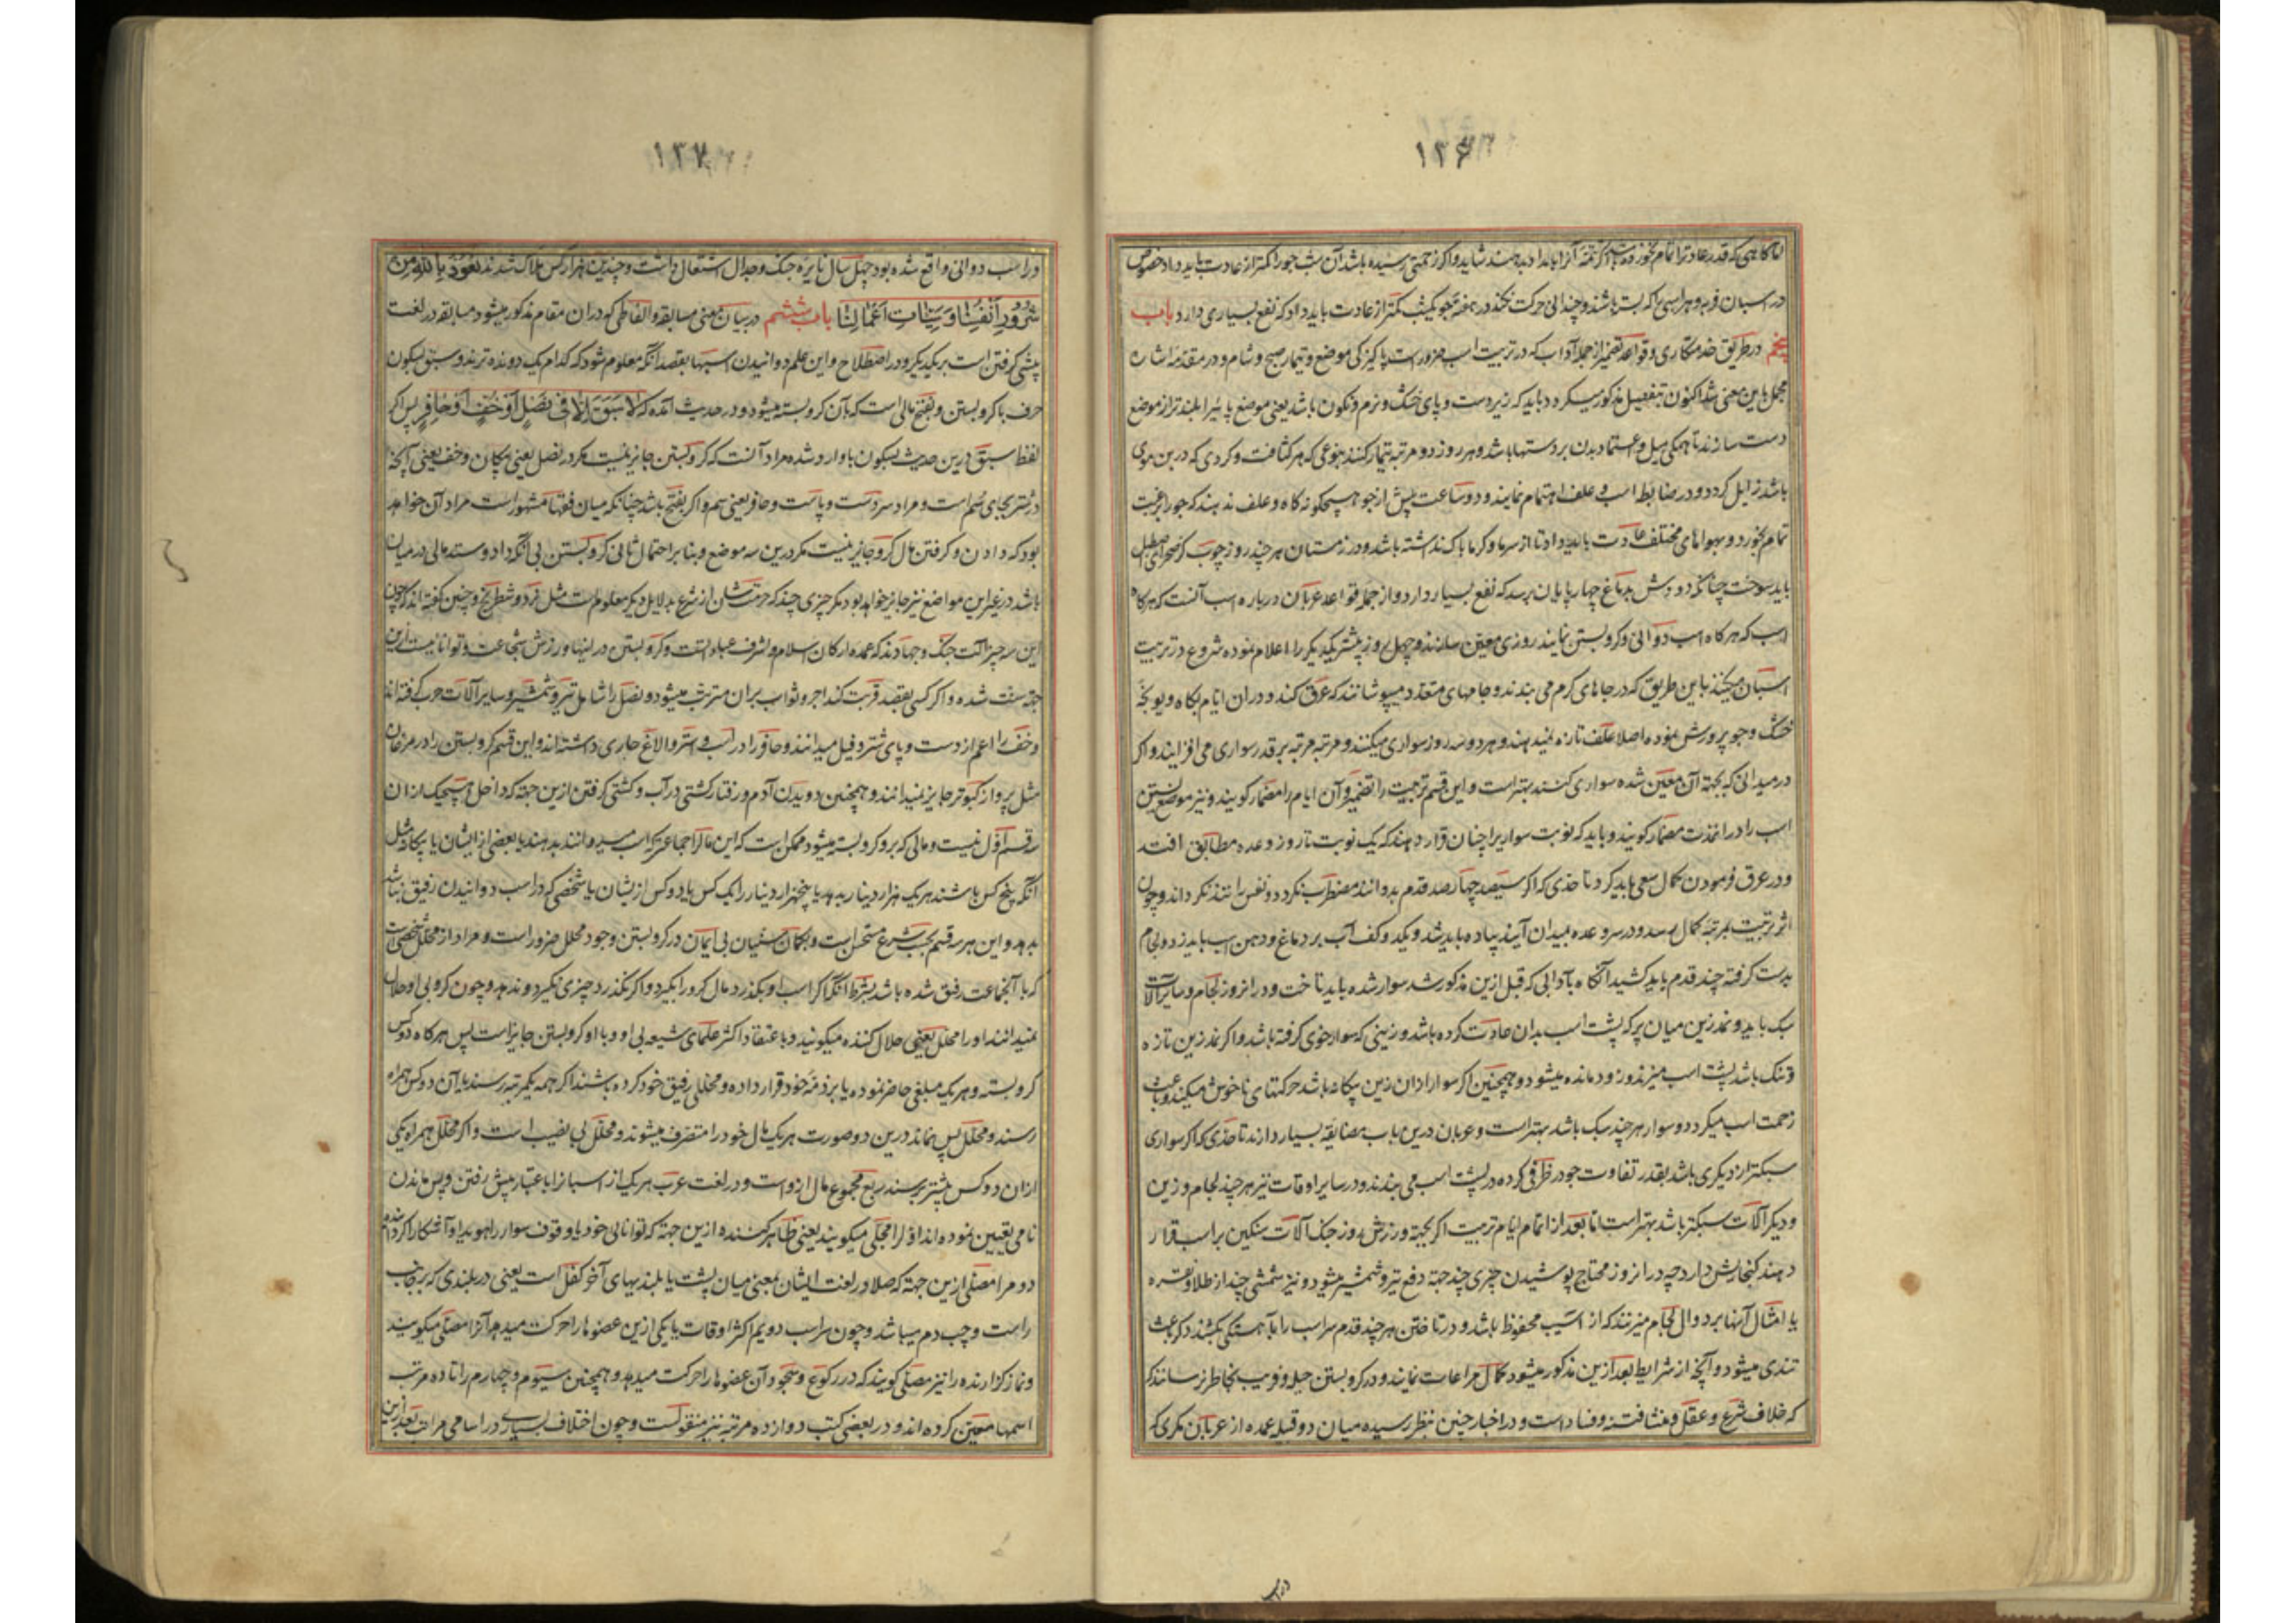 ۱۳۶
در اسبان فربه و هر اسبی را که بسته باشند و چندانی حرکت نکند در هفته جو یکشب کمتر از عادت باید داد که نفع بسیاری دارد باب
پنجم در طریق خدمتکاری و قواعد تضمیر از جمله آداب که در تربیت اسب ضرور است پاکیزگی موضع و تیمار صبح و شام و در مقدمه اشاره
مجمل باین معنی شد اکنون بتفصیل مذکور میگردد باید که زیر دست و پای خشک و نرم و نکون باشد یعنی موضع پا بلندتر از موضع
دست سازند تا همگی میل و اعتماد بدن بر دستها باشد و هر روز دو مرتبه تیمار کنند بنوعی که هر کثافت و کردی که در بن موی
باشد زایل کردد و در ضابطه اسب و علف اهتمام نمایند و دو ساعت پیش از جو هیچگونه کاه و علف ندهند که جو را برغبت
تمام بخورد و بهواهای مختلف عادت باید داد تا از سرما و کرما باک نداشته باشد و در زمستان هر چند روز چوب کز
باید سوخت چنانکه دودش بدماغ چهارپایان برسد که نفع بسیار دارد و از جمله قواعد عربان در باره اسب آنست که هرکاه
اسب که هرکاه اسب دوانی و کرو بستن نمایند روزی معین سازند و چهل روز پیشتر یکدیگر را اعلام نموده شروع در تربیت
اسبان میکنند باین طریق که در جاهای کرم می بندند و جامهای متعدد میپوشانند که عرق کند و در ان ایام بکاه و یونجه
خشک و جو پرورش نموده اصلا علف تازه نمیدهند و هر دو سه روز سواری میکنند و مرتبه مرتبه بر قدر سواری می افزایند و اکر
در میدانی که بجهة آن معین شده سواری کنند بهتر است و این قسم تربیت را تضمیر و آن ایام را مضمار کویند و نیز موضع بستن
اسب را در انمدت مضمار کویند و باید که نوبت سواریرا چنان قرار دهند که یک نوبت تا روز وعده مطابق افتد
و در عرق فرمودن کمال سعی باید کرد تا حدی که اکر سیصد چهارصد قدم بدوانند مضطرب نکردد و نفس را تند نکرداند و چون
اثر تربیت بمرتبه کمال رسد و در سر وعده بمیدان آیند پیاده باید شد و یکدو کف آب بر دماغ و دهن اسب باید زد و لجام
بدست کرفته چند قدم باید کشید آنکاه بآدابی که قبل ازین مذکور شد سوار شده باید تاخت و در انروز لجام و سایر آلات
سبک باید و نمد زین میان پر که پشت اسب بدان عادت کرده باشد و زینی که سوار خوی کرفته باشد و اکر نمد زین تازه
و تنک باشد پشت اسب میزند و زود مانده میشود و همچنین اکر سوار از ان زین بیکانه باشد حرکتهای ناخوش میکند و باعث
زحمت اسب میکردد و سوار هر چند سبک باشد بهتر است و عربان درین باب مضایقه بسیار دارند تا حدی که اکر سواری
سبکتر از دیکری باشد بقدر تفاوت جو در ظرفی کرده در پشت اسب می بندند و در سایر اوقات نیز هر چند لجام و زین
و دیکر آلات سبکتر باشد بهتر است اما بعد از اتمام ایام تربیت اکر بجهة ورزش روز جنک آلات سنکین بر اسب قرار
دهند کنجایش دارد چه در انروز محتاج پوشیدن چیزی چند جهة دفع تیر و شمشیر میشود و نیز شمشی چند از طلا و نقره
یا امثال آنها بر دوال لجام میزنند که از آسیب محفوظ باشد و در تاختن هر چند قدم سر اسب را بآهستکی بکشند که باعث
تندی میشود و آنچه از شرایط بعد ازین مذکور میشود کمال مراعات نمایند و در کرو بستن حیله و فریب بخاطر نرسانند
که خلاف شرع و عقل و منشا فتنه و فساد است و در اخبار چنین بنظر رسیده میان دو قبیله عمده از عربان مکری که
۱۳۷
در اسب دوانی واقع شده بود چهل سال نایره جنک و جدال اشتعال داشت و چندین هزار کس هلاک شدند نعوذ بالله من
شرور انفسنا و سیئات اعمالنا باب ششم در بیان معنی مسابقه و الفاظی که در ان مقام مذکور میشود مسابقه در لغت
پیشی کرفتن است بر یکدیکر و در اصطلاح این علم دوانیدن اسبها بقصد آنکه معلوم شود که کدام یک دونده ترند و سبق بسکون
حرف با کرو بستن و بفتح مالی است که بآن کرو بسته میشود و در حدیث آمده که لا سبق الا فی نصل او خف او حافر پس اکر
لفظ سبق درین حدیث بسکون با وارد شده مراد آنست که کرو بستن جایز نیست مکر در نصل یعنی پیکان و خف یعنی آنچه
در شتر بجای سم است و مراد سر دست و پاست و حافر یعنی سم و اکر بفتح باشد چنانکه میان فقها مشهور است مراد آن خواهد
بود که دادن و کرفتن مال کرو جایز نیست مکر درین سه موضع و بنا بر احتمال ثانی کرو بستن بی آنکه داد و ستد مالی در میان
باشد در غیر این مواضع نیز جایز خواهد بود مکر چیزی چند که حرمتشان از شرع بدلایل دیکر معلوم است مثل نرد و شطرنج و چنین کفته اند که چون
این سه چیز آلت جنک و جهادند که عمده ارکان اسلام و اشرف عبادتست و کرو بستن در اینها ورزش شجاعت و توانائیست ازین
جهة سنت شده و اکر کسی بقصد قربت کند اجر و ثواب بران مترتب میشود و نصل را شامل تیر و شمشیر و سایر آلات حرب کرفته اند
و خف را اعم از دست و پای شتر و فیل میدانند و حافر را در اسب و استر و الاغ جاری داشته اند و این قسم کرو بستن را در مرغان
مثل پرواز کبوتر جایز نمیدانند و همچنین دویدن آدم و رفتار کشتی در آب و کشتی کرفتن ازین جهة که داخل هیچیک از ان
قسم اول نیست و مالی که برو کرو بسته میشود ممکن است که این مال را جماعتی که اسب میدوانند بدهند یا بعضی از ایشان یا بیکانه مثل
آنکه پنج کس باشند هر یک هزار دینار بدهد یا پنجهزار دینار را یک کس یا دو کس ازیشان یا شخصی که در اسب دوانیدن رفیق نباشد
بدهد و این هر سه قسم بحسب شرع مستحسن است و بکمان سنیان بی ایمان در کرو بستن وجود محلل ضرور است و مراد از محلل شخصی است
که با آنجماعت رفیق شده باشد بشرط آنکه اکر اسب او بکذرد مال کرو را بکیرد و اکر نکذرد چیزی نکیرد و ندهد و چون کرو بی او حلال
نمیدانند او را محلل یعنی حلال کننده میکویند و باعتقاد اکثر علمای شیعه بی او و با او کرو بستن جایز است پس هرکاه دو کس
کرو بسته و هر یک مبلغی حاضر نموده یا بر ذمه خود قرار داده و محللی رفیق خود کرده باشند اکر همه یکمرتبه رسند یا آن دو کس همراه
رسند و محلل پس بماند درین دو صورت هر یک مال خود را متصرف میشوند و محلل بی نصیب است و اکر محلل همراه یکی
از ان دو کس پیشتر برسند ربع مجموع مال ازو است و در لغت عرب هر یک از اسبانرا باعتبار پیش رفتن و پس ماندن
نامی تعیین نموده اند اول را مجلی میکویند یعنی ظاهر کننده ازین جهة که توانائی خود یا وقوف سوار را هویدا و آشکارا کرده
دوم را مصلی ازین جهة که صلا در لغت ایشان بمعنی میان پشت یا بلندیهای آخر کفل است یعنی در بلندی که بر جانب
راست و چپ دم میباشد و چون سر اسب دویم اکثر اوقات با یکی ازین عضوها را حرکت میدهد آنرا مصلی میکویند
و نماز کزارنده را نیز مصلی کویند که در رکوع و سجود آن عضوها را حرکت میدهد و همچنین سیوم و چهارم را تا ده مرتبه
اسمها معین کرده اند و در بعضی کتب دوازده مرتبه نیز منقولست و چون اختلاف بسیاری در اسامی مراتب بعد ازین